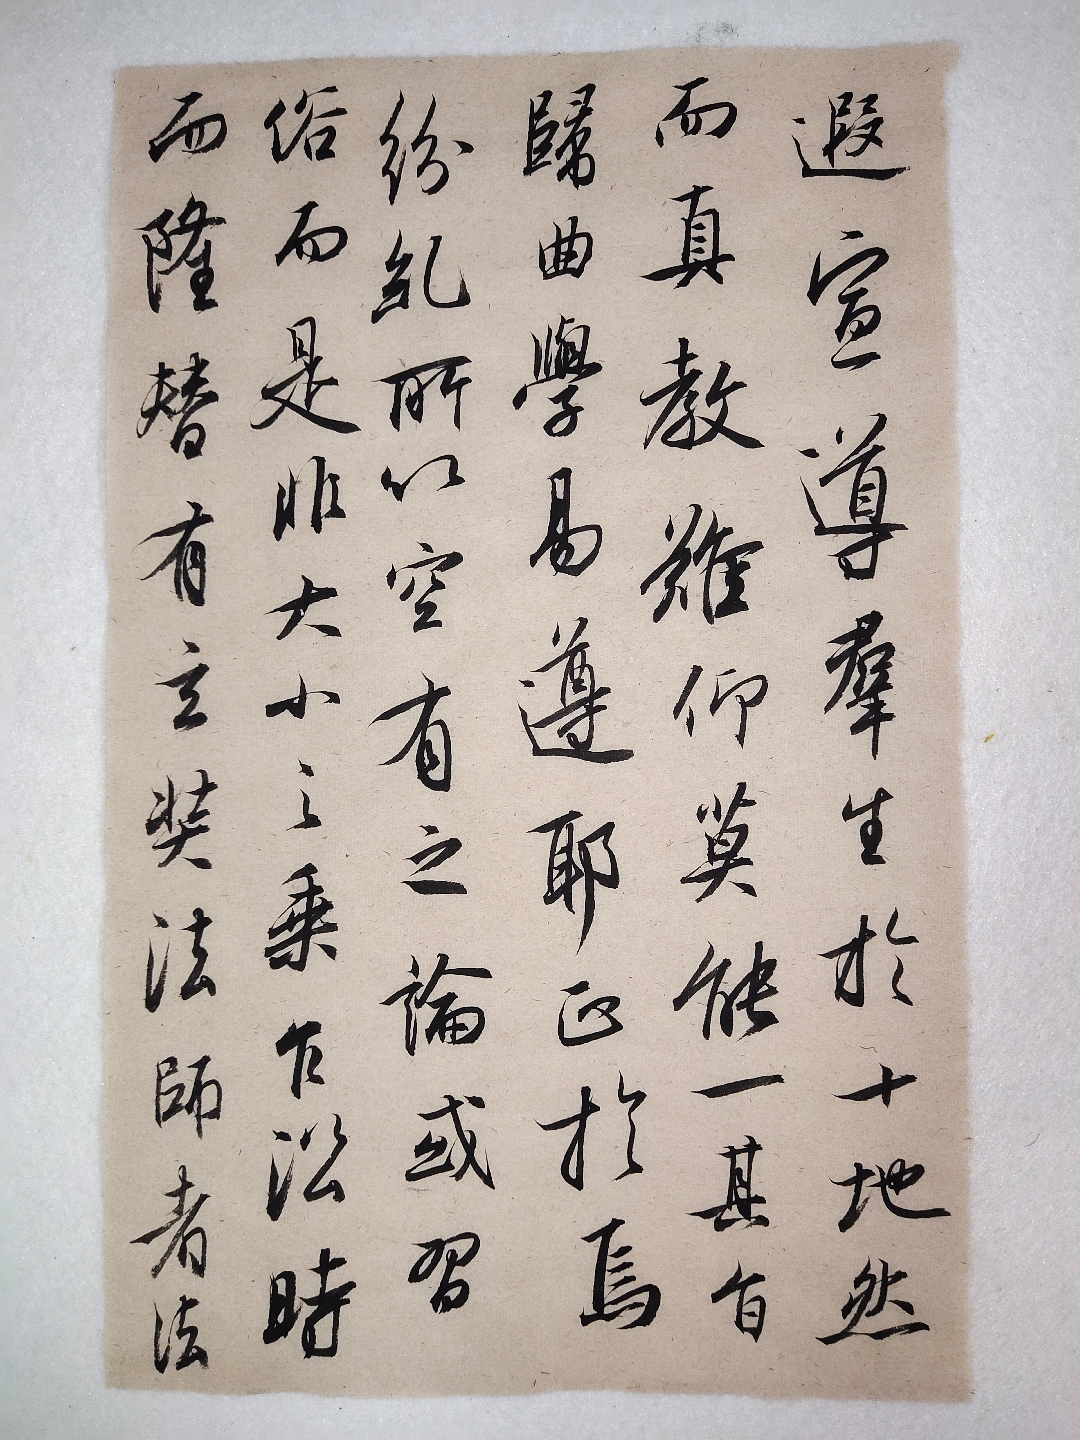 遐宣導羣生於十地然
而真教難仰莫能一其旨
歸曲學易遵耶正於焉
紛糺所以空有之論或習
俗而是非大小之乘乍沿時
而隆替有玄奘法師者法